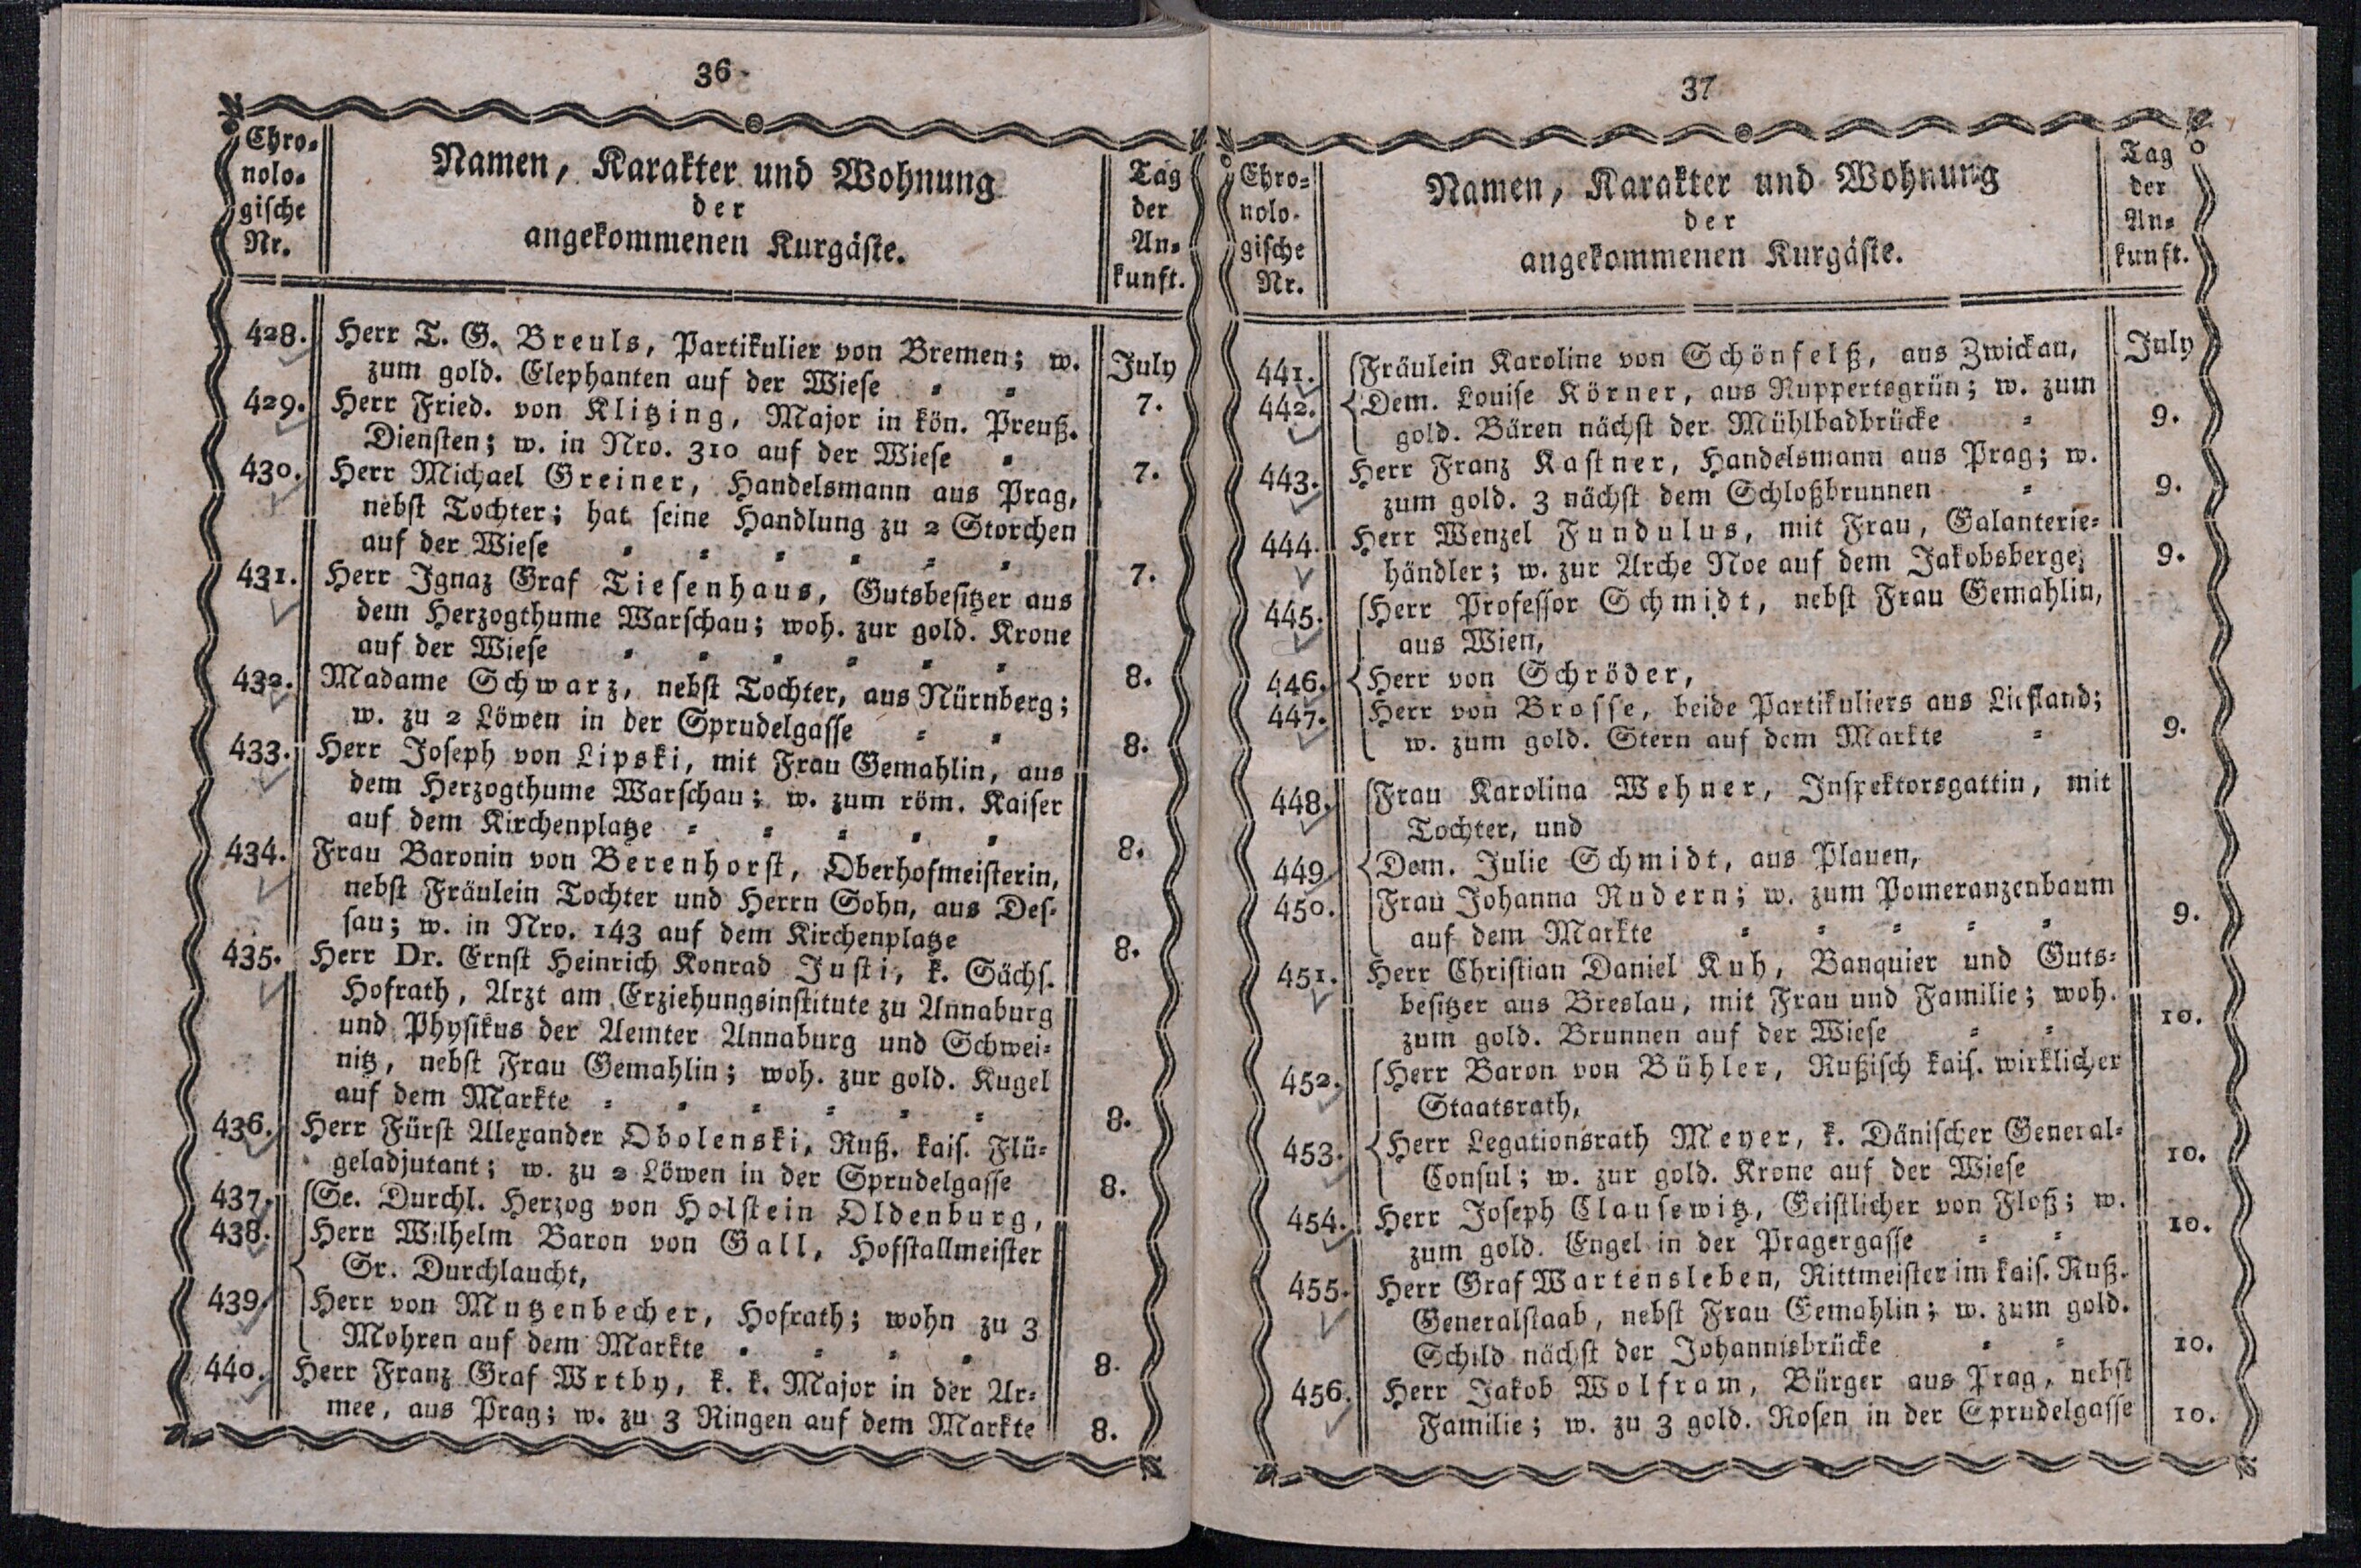 36
Chro-
nolo-
gische
Nr.
Namen, Karakter und Wohnung
der
angekommenen Kurgäste.
Tag
der
An-
kunft.
July
428. Herr T. G. Breuls, Partikulier von Bremen; w.
zum gold. Elephanten auf der Wiese 7.
429. Herr Fried. von Klitzing, Major in kön. Preuß.
Diensten; w. in Nro. 310 auf der Wiese 7.
430. Herr Michael Greiner, Handelsmann aus Prag,
nebst Tochter; hat seine Handlung zu 2 Storchen
auf der Wiese 7.
431. Herr Ignaz Graf Tiesenhaus, Gutsbesitzer aus
dem Herzogthume Warschau; woh. zur gold. Krone
auf der Wiese 8.
432. Madame Schwarz, nebst Tochter, aus Nürnberg;
w. zu 2 Löwen in der Sprudelgasse 8.
433. Herr Joseph von Lipski, mit Frau Gemahlin, aus
dem Herzogthume Warschau; w. zum röm. Kaiser
auf dem Kirchenplatze 8.
434. Frau Baronin von Berenhorst, Oberhofmeisterin,
nebst Fräulein Tochter und Herrn Sohn, aus Des-
sau; w. in Nro. 143 auf dem Kirchenplatze 8.
435. Herr Dr. Ernst Heinrich Konrad Justi, k. Sächs.
Hofrath, Arzt am Erziehungsinstitute zu Annaburg
und Physikus der Aemter Annaburg und Schwei-
nitz, nebst Frau Gemahlin; woh. zur gold. Kugel
auf dem Markte 8.
436. Herr Fürst Alexander Obolenski, Ruß. kais. Flü-
geladjutant; w. zu 2 Löwen in der Sprudelgasse 8.
437. Se. Durchl. Herzog von Holstein Oldenburg,
438. Herr Wilhelm Baron von Gall, Hofstallmeister
Sr. Durchlaucht,
439. Herr von Mutzenbecher, Hofrath; wohn zu 3
Mohren auf dem Markte 8.
440. Herr Franz Graf Wrtby, k. k. Major in der Ar-
mee, aus Prag; w. zu 3 Ringen auf dem Markte 8.
37
Chro-
nolo-
gische
Nr.
Namen, Karakter und Wohnung
der
angekommenen Kurgäste.
Tag
der
An-
kunft.
July
441. Fräulein Karoline von Schönfelß, aus Zwickau,
442. Dem. Louise Körner, aus Ruppertsgrün; w. zum
gold. Bären nächst der Mühlbadbrücke 9.
443. Herr Franz Kastner, Handelsmann aus Prag; w.
zum gold. 3 nächst dem Schloßbrunnen 9.
444. Herr Wenzel Fundulus, mit Frau, Galanterie-
händler; w. zur Arche Noe auf dem Jakobsberge; 9.
445. Herr Professor Schmidt, nebst Frau Gemahlin,
aus Wien,
446. Herr von Schröder,
447. Herr von Brosse, beide Partikuliers aus Liefland;
w. zum gold. Stern auf dem Markte 9.
448. Frau Karolina Wehner, Inspektorsgattin, mit
Tochter, und
449. Dem. Julie Schmidt, aus Plauen,
450. Frau Johanna Rudern; w. zum Pomeranzenbaum
auf dem Markte 9.
451. Herr Christian Daniel Kuh, Banquier und Guts-
besitzer aus Breslau, mit Frau und Familie; woh.
zum gold. Brunnen auf der Wiese 10.
452. Herr Baron von Bühler, Rußisch kais. wirklicher
Staatsrath,
453. Herr Legationsrath Meyer, k. Dänischer General-
Consul; w. zur gold. Krone auf der Wiese 10.
454. Herr Joseph Clausewitz, Geistlicher von Floß; w.
zum gold. Engel in der Pragergasse 10.
455. Herr Graf Wartensleben, Rittmeister im kais. Ruß.
Generalstaab, nebst Frau Gemahlin; w. zum gold.
Schild nächst der Johannisbrücke 10.
456. Herr Jakob Wolfram, Bürger aus Prag, nebst
Familie; w. zu 3 gold. Rosen in der Sprudelgasse 10.